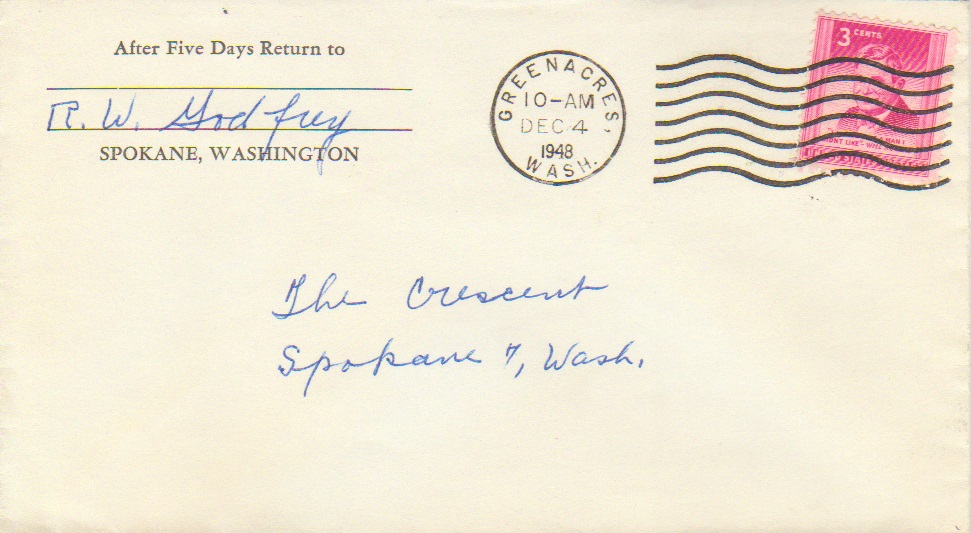 After Five Days Return to
R. W. Godfrey
SPOKANE, WASHINGTON
GREENACRES,
10-AM
DEC 4
1948
WASH.
3 CENTS
The Crescent
Spokane 7, Wash.